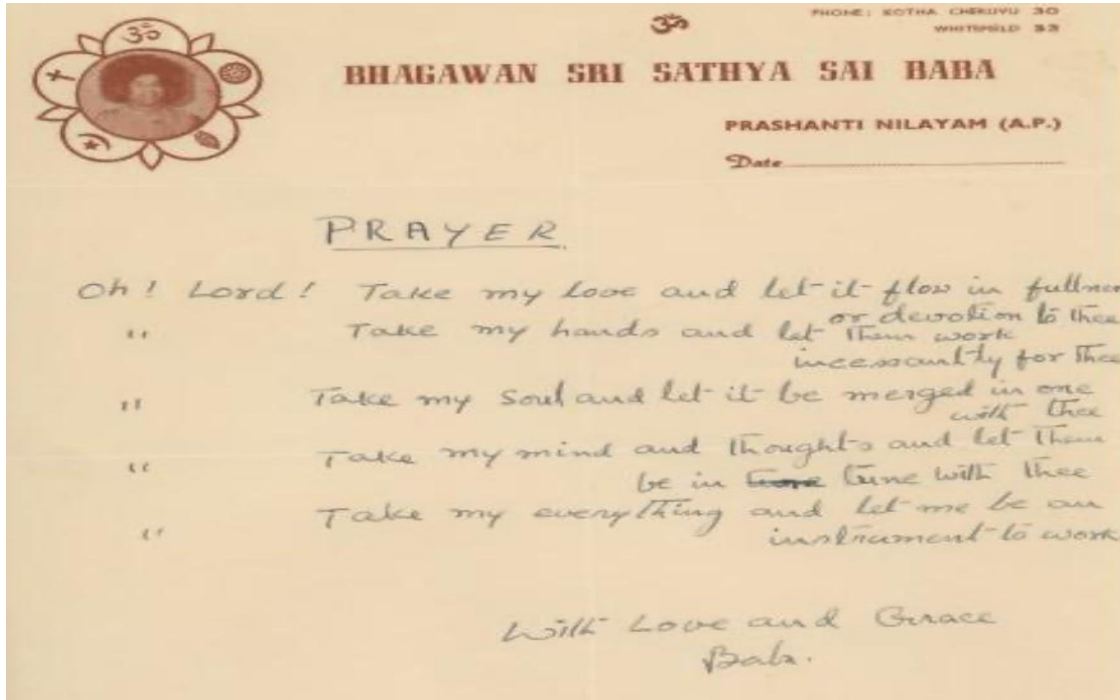 ॐ
PHONE: KOTHA CHERUVU 30
WHITEFIELD 33
ॐ
BHAGAWAN SRI SATHYA SAI BABA
PRASHANTI NILAYAM (A.P.)
Date
PRAYER
Oh! Lord! Take my love and let it flow in fullnes
or devotion to thee
" Take my hands and let them work
incessantly for thee
" Take my soul and let it be merged in one
with thee
" Take my mind and thoughts and let them
be in tune with thee
" Take my everything and let me be an
instrument to work
With Love and Grace
Baba.